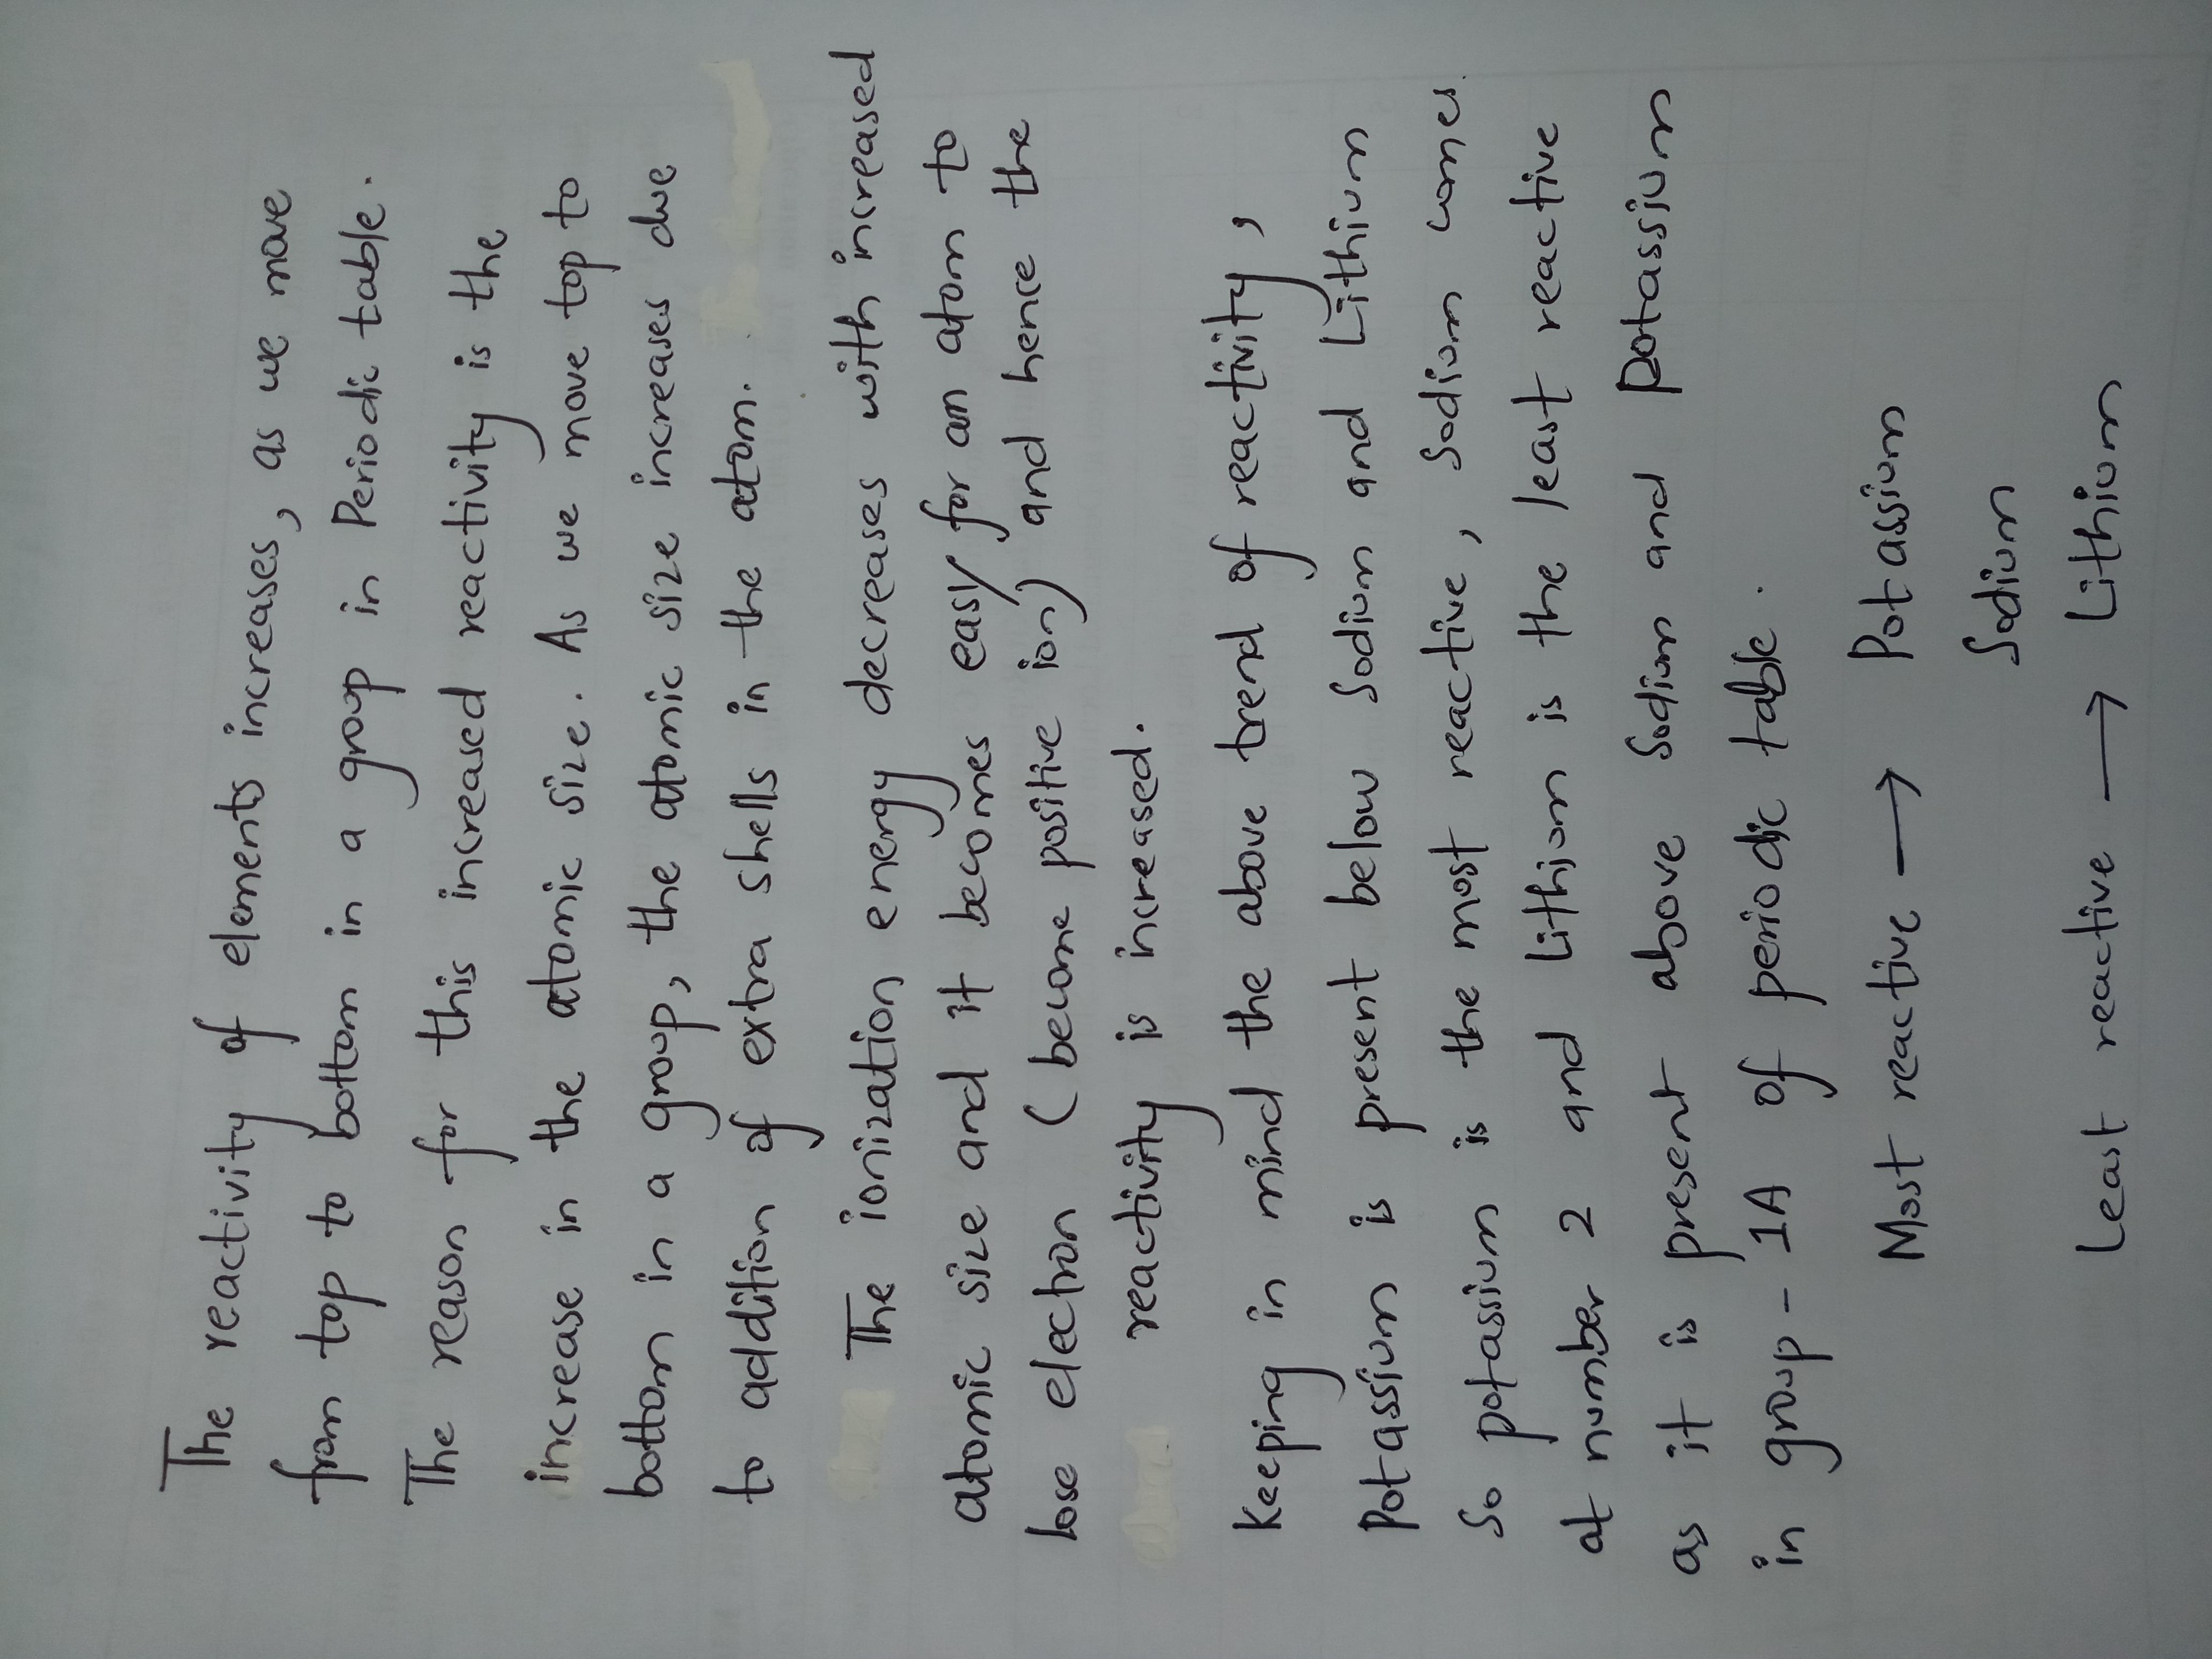 The reactivity of elements increases, as we move
from top to bottom in a group in Periodic table.
The reason for this increased reactivity is the
increase in the atomic size. As we move top to
bottom in a group, the atomic size increases due
to addition of extra shells in the atom.
The ionization energy decreases with increased
atomic size and it becomes easy for an atom to
lose electron (become positive ion) and hence the
reactivity is increased.
Keeping in mind the above trend of reactivity,
Potassium is present below Sodium and Lithium
So potassium is the most reactive, Sodium comes
at number 2 and Lithium is the least reactive
as it is present above Sodium and Potassium
in group - 1A of periodic table.
Most reactive → Potassium
Sodium
Least reactive → Lithium